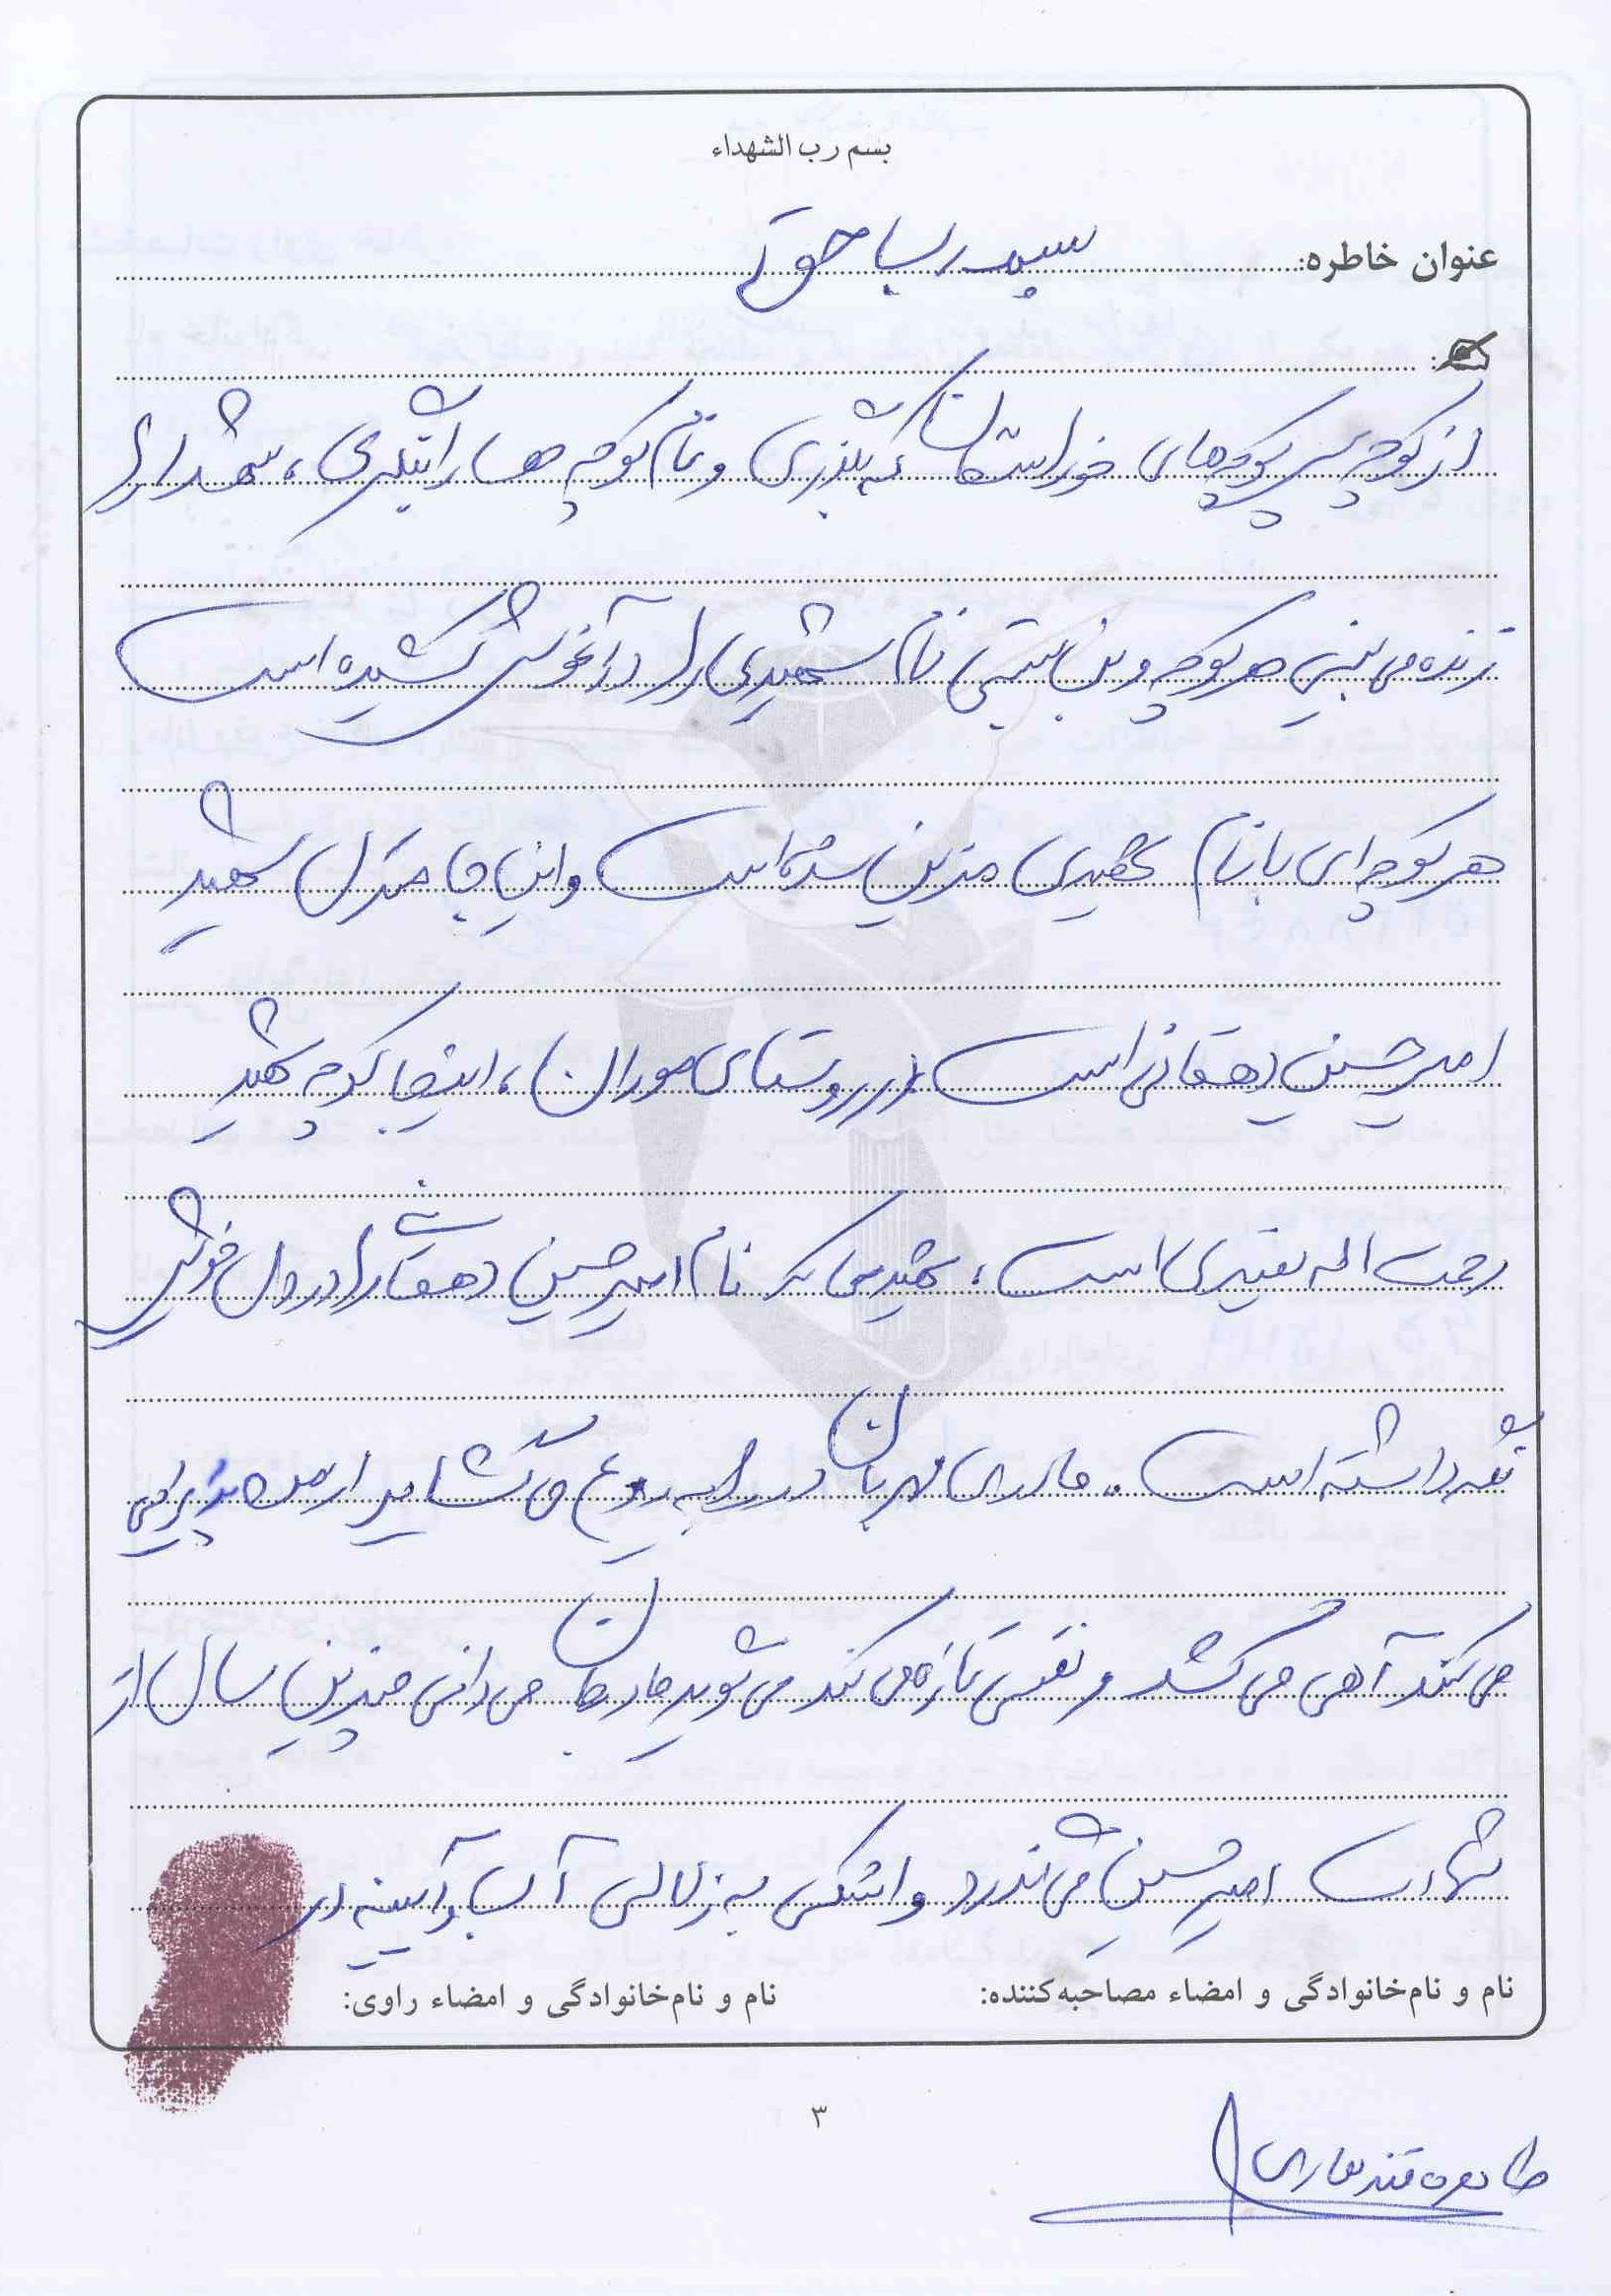 بسم رب الشهداء
عنوان خاطره:
از کوچه پس کوچه‌های خوراسگان که بگذری و نام کوچه ها را بنگری، شهدا را
زنده می بینی هر کوچه و بن بستی نام شهیدی را در آغوش کشیده است
هر کوچه ای با نام شهیدی مزین شده است و این جا منزل شهید
امیرحسین دهقانی است (در روستای هوران)، اینجا کوچه شهید
رحمت اله نصیری است، شهیدی که نام امیرحسین دهقانی را در دل خویش
نگه داشته است. مادری مهربان در را به روی ما می گشاید از من پذیرایی
می کند آهی می کشد و نفسی تازه می کند می گوید مادر جان می دانی چندین سال از
شهادت امیرحسین می گذرد و اشکی به زلالی آب و آیینه در
نام و نام‌خانوادگی و امضاء مصاحبه‌کننده:
نام و نام‌خانوادگی و امضاء راوی:
۳
طاهره قندهاری